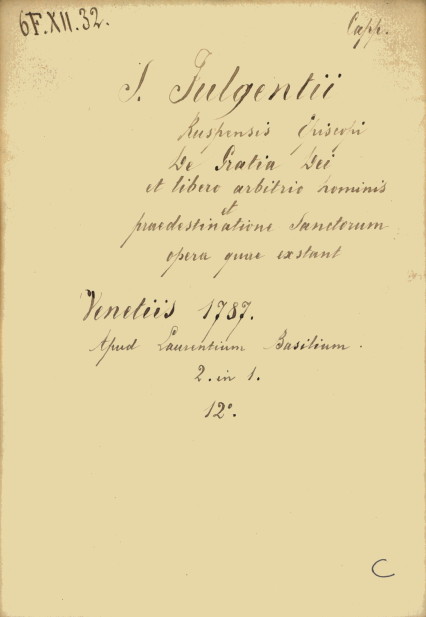 6F.XII.32.
Capp.
S. Fulgentii
Ruspensis Episcopi
De Gratia Dei
et libero arbitrio hominis
et
praedestinatione Sanctorum
opera quae exstant
Venetiis 1787.
Apud Laurentium Basilium.
2. in 1.
12°.
C